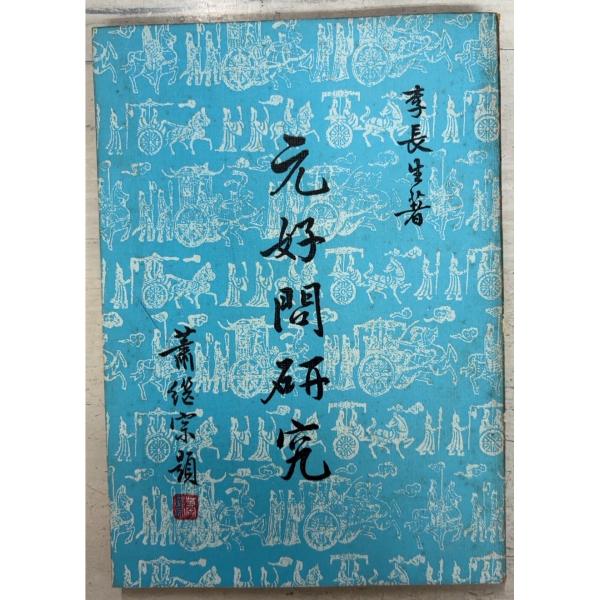 李長生著
元好問研究
蕭繼宗題